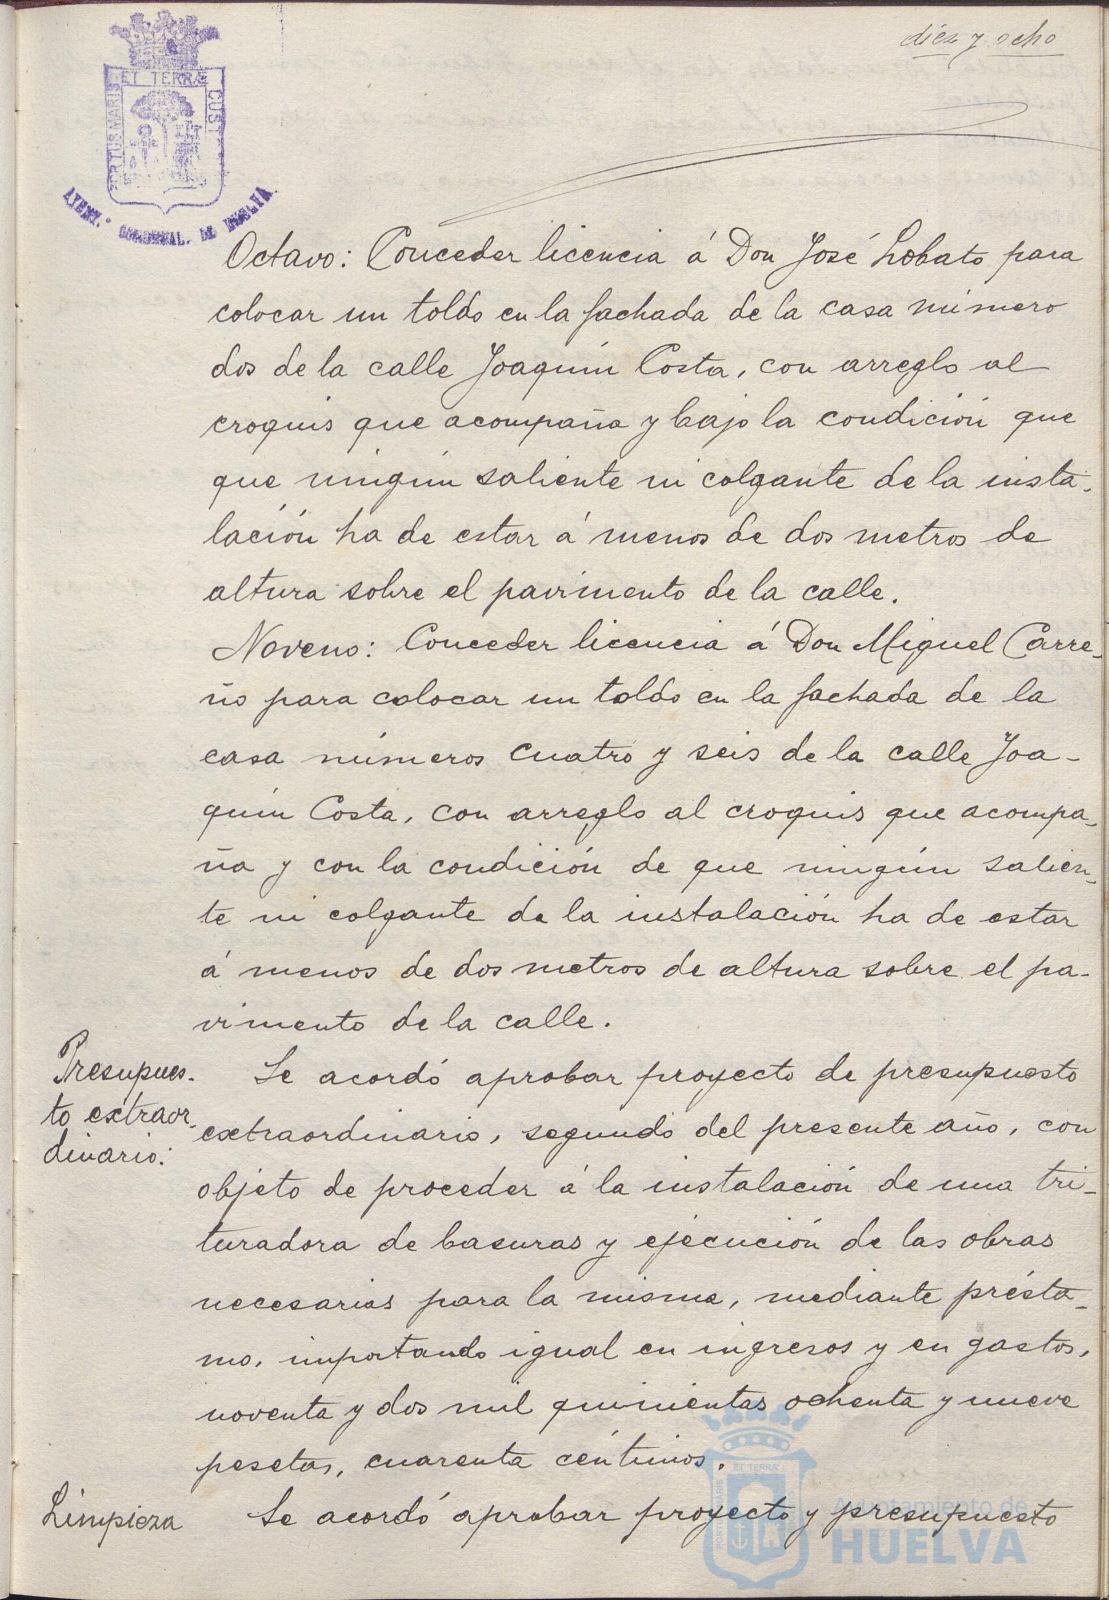 diez y ocho
PORTUS MARIS ET TERRÆ CUST
AYUNT.º CONSTNAL. DE HUELVA.
Octavo: Conceder licencia á Don José Lobato para
colocar un toldo en la fachada de la casa número
dos de la calle Joaquín Costa, con arreglo al
croquis que acompaña y bajo la condición que
que ningún saliente ni colgante de la insta-
lación ha de estar á menos de dos metros de
altura sobre el pavimento de la calle.
Noveno: Conceder licencia á Don Miguel Carre-
ño para colocar un toldo en la fachada de la
casa números cuatro y seis de la calle Joa-
quín Costa, con arreglo al croquis que acompa-
ña y con la condición de que ningún salien-
te ni colgante de la instalación ha de estar
á menos de dos metros de altura sobre el pa-
vimento de la calle.
Presupues-
to extraor-
dinario:
Se acordó aprobar proyecto de presupuesto
extraordinario, segundo del presente año, con
objeto de proceder á la instalación de una tri-
turadora de basuras y ejecución de las obras
necesarias para la misma, mediante présta-
mo, importando igual en ingresos y en gastos,
noventa y dos mil quinientas ochenta y nueve
pesetas, cuarenta céntimos.
Limpieza
Se acordó aprobar proyecto y presupuesto
Ayuntamiento de
HUELVA